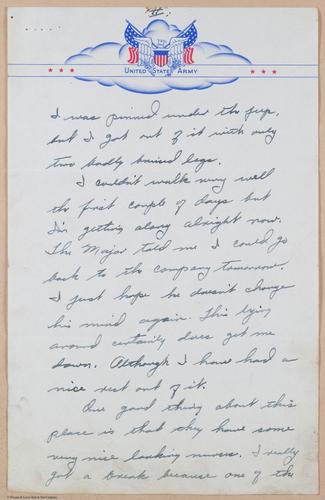 II
UNITED STATES ARMY
I was pinned under the jeep,
but I got out of it with only
two badly bruised legs.
I couldn't walk very well
the first couple of days but
I'm getting along alright now.
The Major told me I could go
back to the company tomorrow.
I just hope he doesn't change
his mind again. This lying
around certainly does get me
down. Although I have had a
nice rest out of it.
One good thing about this
place is that they have some
very nice looking nurses. I really
got a break because one of the